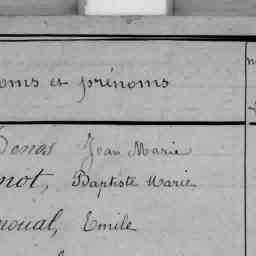 oms et prénoms
Jean Marie
not, Baptiste Marie
noual, Emile